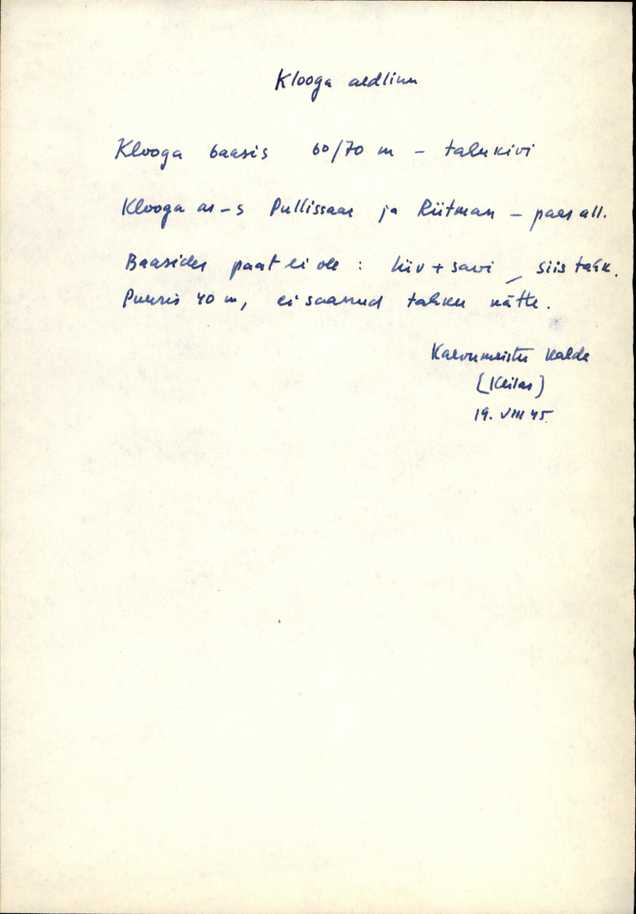 Klooga aedlinn
Klooga baasis 60/70 m - tahukivi
Klooga as-s Pullissaar ja Riitman - paas all.
Baasides paat ei ole : liiv + savi, siis tahk.
Puuris 40 m, ei saanud tahku kätte.
Kaevumeister Kalda
[Keilas]
19. VIII 45.